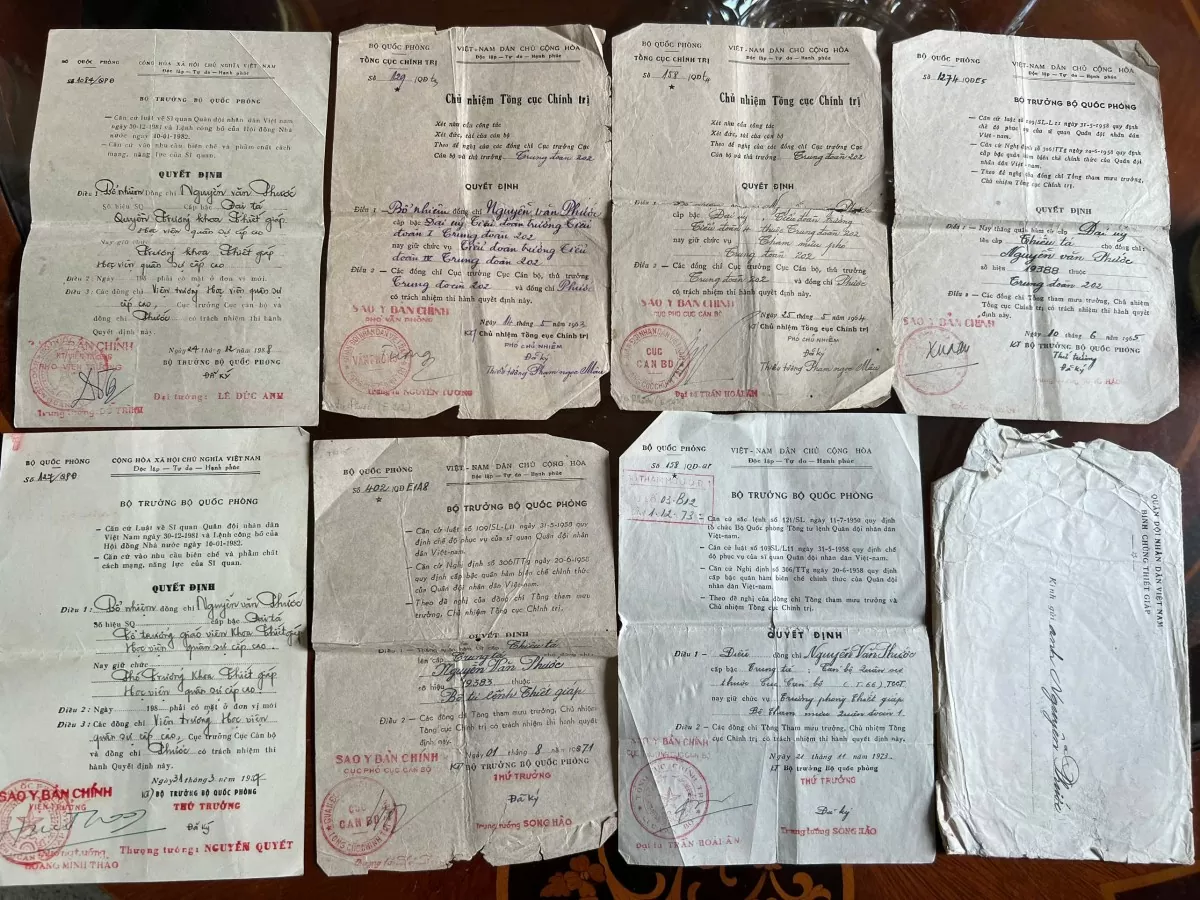 BỘ QUỐC PHÒNG
CỘNG HÒA XÃ HỘI CHỦ NGHĨA VIỆT NAM
Độc lập — Tự do — Hạnh phúc
Số 1084/QPĐ
BỘ TRƯỞNG BỘ QUỐC PHÒNG
— Căn cứ luật về Sĩ quan Quân đội nhân dân Việt nam
ngày 30-12-1981 và Lệnh công bố của Hội đồng Nhà
nước ngày 10-01-1982.
— Căn cứ vào nhu cầu biên chế và phẩm chất cách
mạng, năng lực của Sĩ quan.
QUYẾT ĐỊNH
Điều 1: Bổ nhiệm Đồng chí Nguyễn văn Phước
Số hiệu SQ cấp bậc Đại tá
Quyền Trưởng khoa Thiết giáp
Học viện quân sự cấp cao
Nay giữ chức
Trưởng khoa Thiết giáp
Học viện quân sự cấp cao
Điều 2: Ngày 198 phải có mặt ở đơn vị mới
Điều 3: Các đồng chí Viện trưởng Học viện quân sự
cấp cao, Cục Trưởng Cục Cán bộ và
đồng chí Phước có trách nhiệm thi hành
Quyết định này
Ngày 24 tháng 12 năm 1988
BỘ TRƯỞNG BỘ QUỐC PHÒNG
Đã ký
Đại tướng: LÊ ĐỨC ANH
SAO Y BẢN CHÍNH
BỘ QUỐC PHÒNG
TỔNG CỤC CHÍNH TRỊ
VIỆT-NAM DÂN CHỦ CỘNG HÒA
Độc lập — Tự do — Hạnh phúc
Số 129 /QĐ
Chủ nhiệm Tổng cục Chính trị
Xét nhu cầu công tác
Xét đức, tài của cán bộ
Theo đề nghị của các đồng chí Cục trưởng Cục
Cán bộ và thủ trưởng Trung đoàn 202
QUYẾT ĐỊNH
Điều 1 — Bổ nhiệm đồng chí Nguyễn văn Phước
cấp bậc Đại uý Tiểu đoàn trưởng Tiểu
đoàn I Trung đoàn 202
nay giữ chức vụ Tiểu đoàn trưởng Tiểu
đoàn IV Trung đoàn 202
Điều 2 — Các đồng chí Cục trưởng Cục Cán bộ, thủ trưởng
Trung đoàn 202 và đồng chí Phước
có trách nhiệm thi hành quyết định này.
SAO Y BẢN CHÍNH
PHÓ VĂN PHÒNG
Ngày 14 tháng 5 năm 1963
KT/ Chủ nhiệm Tổng cục Chính trị
PHÓ CHỦ NHIỆM
Đã ký
Thiếu tướng Phạm ngọc Mậu
BỘ QUỐC PHÒNG
TỔNG CỤC CHÍNH TRỊ
VIỆT-NAM DÂN CHỦ CỘNG HÒA
Độc lập — Tự do — Hạnh phúc
Số 158 /QĐ
Chủ nhiệm Tổng cục Chính trị
Xét nhu cầu công tác
Xét đức, tài của cán bộ
Theo đề nghị của các đồng chí Cục trưởng Cục
Cán bộ và thủ trưởng Trung đoàn 202
QUYẾT ĐỊNH
cấp bậc Đại uý, Tiểu đoàn trưởng
Tiểu đoàn 4 thuộc Trung đoàn 202
nay giữ chức vụ Tham mưu phó
Trung đoàn 202
Điều 2 — Các đồng chí Cục trưởng Cục Cán bộ, thủ trưởng
Trung đoàn 202 và đồng chí Phước
có trách nhiệm thi hành quyết định này.
SAO Y BẢN CHÍNH
CỤC PHÓ CỤC CÁN BỘ
Ngày 25 tháng 5 năm 1964
KT/ Chủ nhiệm Tổng cục Chính trị
PHÓ CHỦ NHIỆM
Đã ký
Thiếu tướng Phạm ngọc Mậu
CỤC CÁN BỘ
Đại tá TRẦN HOÀI ÂN
BỘ QUỐC PHÒNG
VIỆT-NAM DÂN CHỦ CỘNG HÒA
Độc lập — Tự do — Hạnh phúc
Số 1274 /QĐE5
BỘ TRƯỞNG BỘ QUỐC PHÒNG
— Căn cứ luật số 109/SL-L11 ngày 31-5-1958 quy định
chế độ phục vụ của sĩ quan Quân đội nhân dân
Việt-nam.
— Căn cứ Nghị định số 306/TTg ngày 20-6-1958 quy định
cấp bậc quân hàm biên chế chính thức của Quân đội
nhân dân Việt-nam.
— Theo đề nghị của đồng chí Tổng tham mưu trưởng,
Chủ nhiệm Tổng cục Chính trị.
QUYẾT ĐỊNH
Điều 1 — Nay thăng quân hàm từ cấp Đại uý
lên cấp Thiếu tá cho đồng chí:
Nguyễn văn Phước
số hiệu 19388 thuộc
Trung đoàn 202
Điều 2 — Các đồng chí Tổng tham mưu trưởng, Chủ nhiệm
Tổng cục Chính trị có trách nhiệm thi hành quyết
định này.
SAO Y BẢN CHÍNH
Ngày 10 tháng 6 năm 1965
KT BỘ TRƯỞNG BỘ QUỐC PHÒNG
Thứ trưởng
Đã ký
BỘ QUỐC PHÒNG
CỘNG HÒA XÃ HỘI CHỦ NGHĨA VIỆT NAM
Độc lập — Tự do — Hạnh phúc
Số 127/QPĐ
BỘ TRƯỞNG BỘ QUỐC PHÒNG
— Căn cứ Luật về Sĩ quan Quân đội nhân dân
Việt Nam ngày 30-12-1981 và Lệnh công bố của
Hội đồng Nhà nước ngày 10-01-1982.
— Căn cứ vào nhu cầu biên chế và phẩm chất
cách mạng, năng lực của Sĩ quan.
QUYẾT ĐỊNH
Điều 1: Bổ nhiệm đồng chí Nguyễn văn Phước
Số hiệu SQ cấp bậc Đại tá
Tổ trưởng giáo viên Khoa Thiết giáp
Học viện quân sự cấp cao
Nay giữ chức
Phó Trưởng Khoa Thiết giáp
Học viện quân sự cấp cao
Điều 2: Ngày 198 phải có mặt ở đơn vị mới
Điều 3: Các đồng chí Viện trưởng Học viện
quân sự cấp cao, Cục trưởng Cục Cán bộ
và đồng chí Phước có trách nhiệm thi
hành Quyết định này.
Ngày 31 tháng 3 năm 1987
KT) BỘ TRƯỞNG BỘ QUỐC PHÒNG
THỨ TRƯỞNG
Đã ký
Thượng tướng: NGUYỄN QUYẾT
SAO Y BẢN CHÍNH
VIỆN TRƯỞNG
HOÀNG MINH THẢO
BỘ QUỐC PHÒNG
VIỆT-NAM DÂN CHỦ CỘNG HÒA
Độc lập — Tự do — Hạnh phúc
Số 402 /QĐE1A8
BỘ TRƯỞNG BỘ QUỐC PHÒNG
— Căn cứ luật số 109/SL-L11 ngày 31-5-1958 quy
định chế độ phục vụ của sĩ quan quân đội nhân
dân Việt-nam.
— Căn cứ Nghị định số 306/TTg ngày 20-6-1958
quy định cấp bậc quân hàm biên chế chính thức
của Quân đội nhân dân Việt-nam.
— Theo đề nghị của đồng chí Tổng tham mưu
trưởng, Chủ nhiệm Tổng cục Chính trị.
QUYẾT ĐỊNH
Thiếu tá
lên cấp Trung tá
Nguyễn Văn Phước
số hiệu 19383 thuộc
Bộ tư lệnh Thiết giáp
Điều 2 — Các đồng chí Tổng tham mưu trưởng, Chủ nhiệm
Tổng cục Chính trị có trách nhiệm thi hành quyết
định này.
SAO Y BẢN CHÍNH
CỤC PHÓ CỤC CÁN BỘ
Ngày 01 tháng 8 năm 1971
KT BỘ TRƯỞNG BỘ QUỐC PHÒNG
THỨ TRƯỞNG
Đã ký
Trung tướng SONG HÀO
CỤC CÁN BỘ
BỘ QUỐC PHÒNG
VIỆT-NAM DÂN CHỦ CỘNG HÒA
Độc lập — Tự do — Hạnh phúc
Số 158 /QĐ-QP
03-B02
1-12-73
BỘ TRƯỞNG BỘ QUỐC PHÒNG
— Căn cứ sắc lệnh số 121/SL ngày 11-7-1950 quy định
tổ chức Bộ Quốc phòng Tổng tư lệnh Quân đội nhân dân
Việt-nam.
— Căn cứ luật số 109SL/L11 ngày 31/5-1958 quy định chế
độ phục vụ của sĩ quan Quân đội nhân dân Việt-nam.
— Căn cứ Nghị định số 306/TTg ngày 20/6-1958 quy định
cấp bậc quân hàm biên chế chính thức của Quân đội nhân
dân Việt-nam.
— Theo đề nghị của đồng chí Tổng tham mưu trưởng và
Chủ nhiệm Tổng cục Chính trị.
QUYẾT ĐỊNH
Điều 1 — Điều đồng chí Nguyễn Văn Phước
cấp bậc Trung tá, Cán bộ quân sự
thuộc Cục Cán bộ (T.66), TCCT
nay giữ chức vụ Trưởng phòng Thiết giáp
Bộ Tham mưu Quân đoàn 1
Điều 2 — Các đồng chí Tổng Tham mưu trưởng, Chủ nhiệm Tổng
cục Chính trị có trách nhiệm thi hành quyết định này.
SAO Y BẢN CHÍNH
Ngày 21 tháng 11 năm 1973
KT Bộ trưởng Bộ Quốc phòng
THỨ TRƯỞNG
Đã ký
Trung tướng SONG HÀO
Đại tá TRẦN HOÀI ÂN
QUÂN ĐỘI NHÂN DÂN VIỆT NAM
BINH CHỦNG THIẾT GIÁP
Kính gửi anh Nguyễn Phước